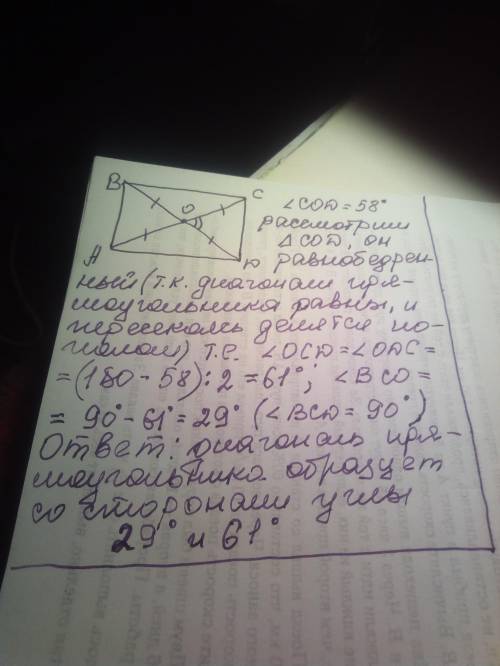 B
C
O
A
D
∠COD = 58°
рассмотрим
△COD, он
равнобедрен-
ный (т.к. диагонали пря-
моугольника равны, и
пересекаясь делятся по-
полам) т.е. ∠OCD = ∠ODC =
= (180 - 58) : 2 = 61°; ∠BCO =
= 90° - 61° = 29° (∠BCD = 90°)
Ответ: диагональ пря-
моугольника образует
со сторонами углы
29° и 61°